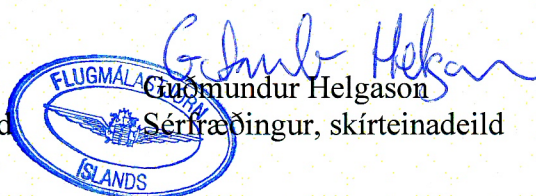 Guðmundur Helgason
Sérfræðingur, skírteinadeild
FLUGMÁLASTJÓRN
ÍSLANDS